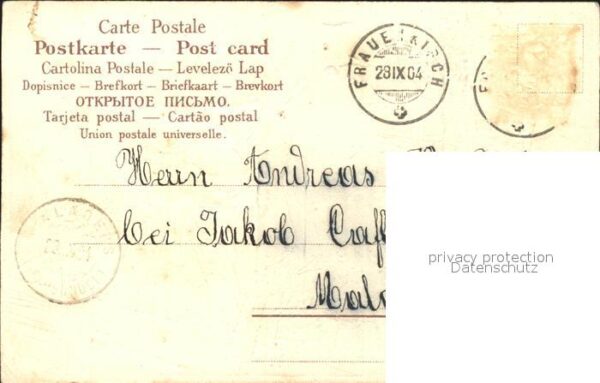 Carte Postale
Postkarte — Post card
Cartolina Postale — Levelező Lap
Dopisnice — Brefkort — Briefkaart — Brevkort
ОТКРЫТОЕ ПИСЬМО.
Tarjeta postal — Cartão postal
Union postale universelle.
FRAUENKIRCH
28 IX 04
Herrn Andreas
bei Jakob Caf
privacy protection
Datenschutz